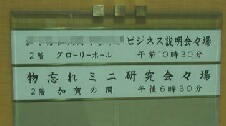 ビジネス説明会々場
2階 グローリーホール 午前10時30分
物忘れミニ研究会々場
2階 加賀の間 午後6時30分